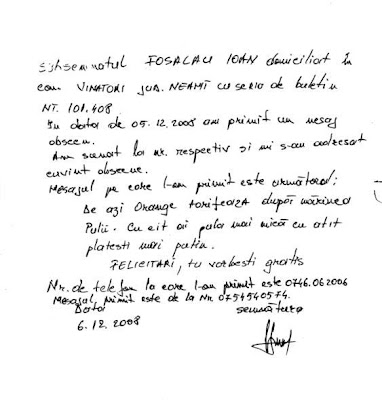 Subsemnatul FOSALAU IOAN domiciliat în
com. VINATORI JUD. NEAMŢ cu seria de buletin
NT. 101.408
În data de 05.12.2008 am primit un mesaj
obscen.
Am sunat la nr. respectiv si mi s-au adresat
cuvint obscene.
Mesajul pe care l-am primit este următorul:
De azi Orange tarifeaza după mărimea
Pulii. Cu cit ai pula mai mică cu atit
platesti mai putin.
FELICITARI, tu vorbesti gratis
Nr. de telefon la care l-am primit este 0746.062006
Mesajul primit este de la Nr. 0754540574.
Data semnătura
6.12.2008